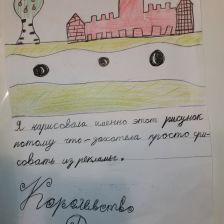 Я нарисовала именно этот рисунок
потому что - захотела просто сри-
совать из рекламы.
Королевство